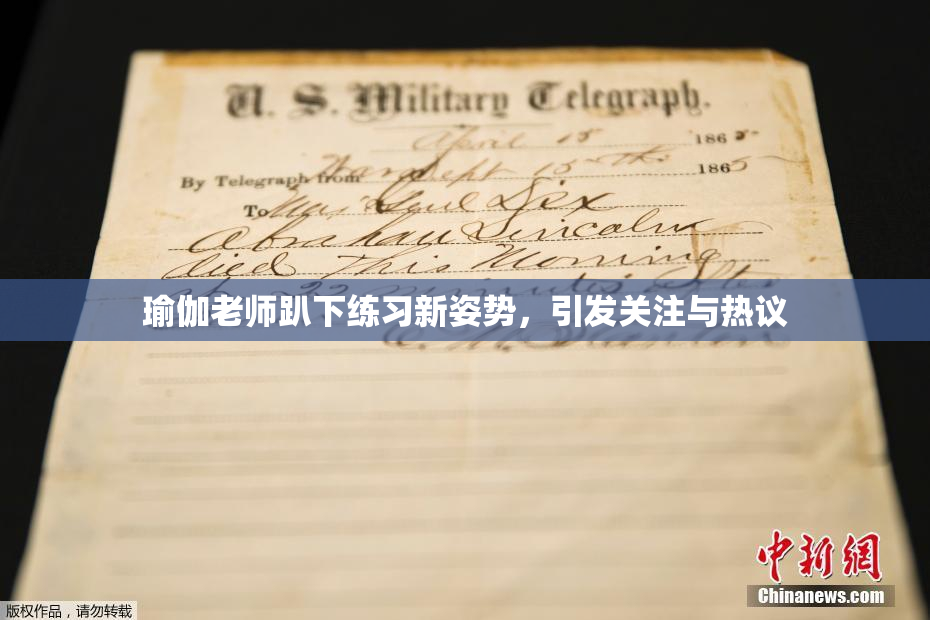 U. S. Military Telegraph.
April 15 1865
By Telegraph from War Dept 15th 1865
To Maj Genl Dix
Abraham Lincoln
died This Morning
at 22 minutes after
瑜伽老师趴下练习新姿势，引发关注与热议
E. M. Stanton
中新網
Chinanews.com
版权作品，请勿转载